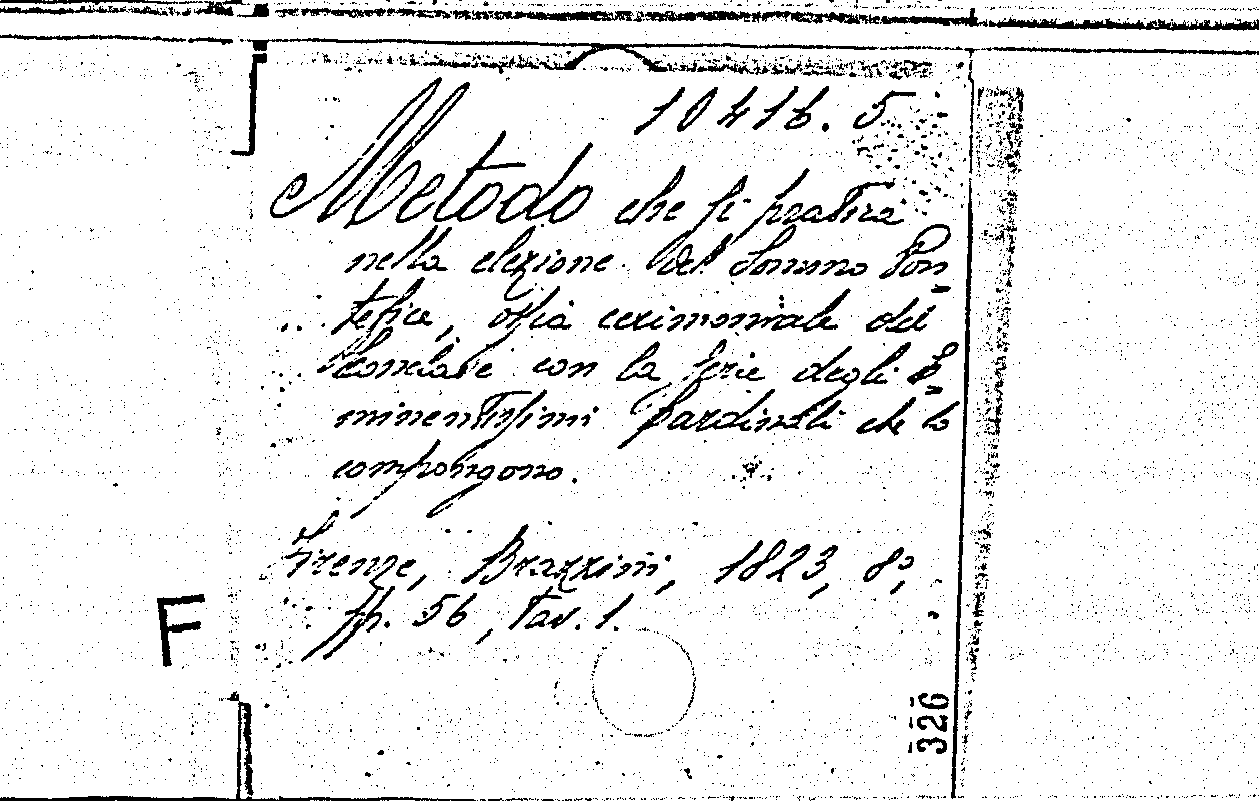 10416. 5
Metodo che si pratica
nella elezione del Sommo Pon=
tefice, ossia cerimoniale del
Conclave con la serie degli E=
minentissimi Cardinali che lo
compongono.
Firenze, Brazzini, 1823, 8°,
pp. 56, tav. 1.
F
326